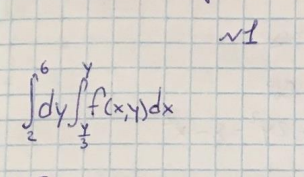 №1
∫₂⁶ dy ∫_{y/3}^{y} f(x,y)dx